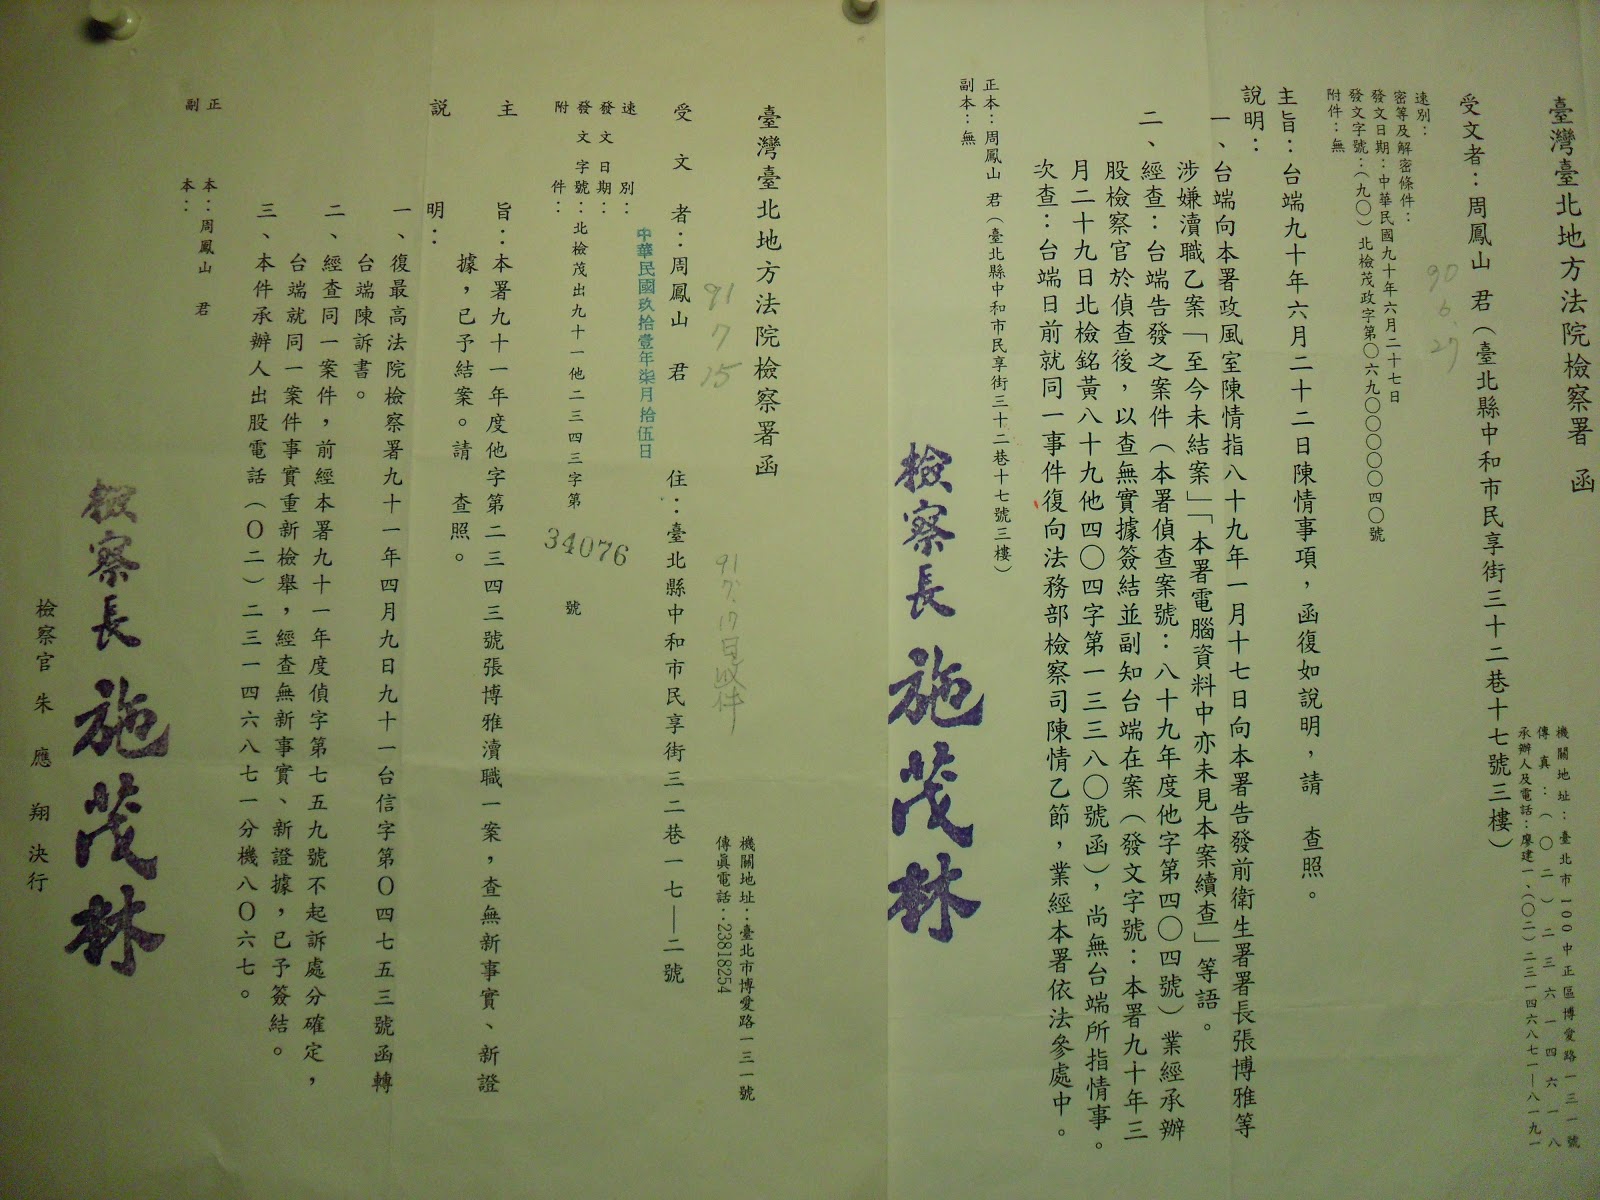 臺灣臺北地方法院檢察署 函
機關地址:臺北市100中正區博愛路一三一號
傳真:(〇二)二三六一四六一八
承辦人及電話:廖建一、(〇二)二三一四六八七一—八一九一
受文者:周鳳山 君(臺北縣中和市民享街三十二巷十七號三樓)
90 6. 27
速別:
密等及解密條件:
發文日期:中華民國九十年六月二十七日
發文字號:(九〇)北檢茂政字第〇六九〇〇〇〇〇四〇號
附件:無
主旨:台端九十年六月二十二日陳情事項,函復如說明,請 查照。
說明:
一、台端向本署政風室陳情指八十九年一月十七日向本署告發前衛生署署長張博雅等
涉嫌瀆職乙案「至今未結案」「本署電腦資料中亦未見本案續查」等語。
二、經查:台端告發之案件(本署偵查案號:八十九年度他字第四〇四號)業經承辦
股檢察官於偵查後,以查無實據簽結並副知台端在案(發文字號:本署九十年三
月二十九日北檢銘黃八十九他四〇四字第一三三八〇號函),尚無台端所指情事。
次查:台端日前就同一事件復向法務部檢察司陳情乙節,業經本署依法參處中。
正本:周鳳山 君(臺北縣中和市民享街三十二巷十七號三樓)
副本:無
檢察長 施茂林
臺灣臺北地方法院檢察署函
機關地址:臺北市博愛路一三一號
傳真電話:23818254
91 7 15
91.7.17日收件
受文者:周鳳山 君 住:臺北縣中和市民享街三二巷一七—二號
速別:
中華民國玖拾壹年柒月拾伍日
發文日期:
發文字號:北檢茂出九十一他二三四三字第 34076 號
附件:
主旨:本署九十一年度他字第二三四三號張博雅瀆職一案,查無新事實、新證
據,已予結案。請 查照。
說明:
一、復最高法院檢察署九十一年四月九日九十一台信字第〇四七五三號函轉
台端陳訴書。
二、經查同一案件,前經本署九十一年度偵字第七五九號不起訴處分確定,
台端就同一案件事實重新檢舉,經查無新事實、新證據,已予簽結。
三、本件承辦人出股電話(〇二)二三一四六八七一分機八〇六七。
正本:周鳳山 君
副本:
檢察長 施茂林
檢察官 朱應翔 決行